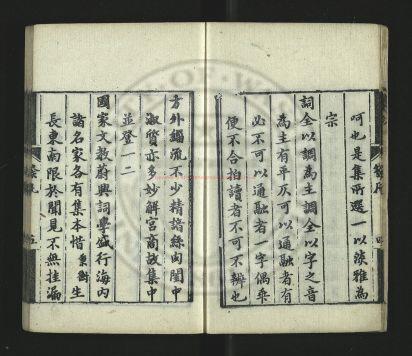 呵也是集所選一以淡雅為
宗
詞全以調為主調全以字之音
為主音有平仄可以通融者有
必不可以通融者一字偶乖
便不合拍讀者不可不辨也
方外緇流不少精語絲肉閨中
淑質亦多妙解宮商故集中
並登一二
國家文教蔚興詞學盛行海內
諸名家各有集本惜秉衡生
長東南限於聞見不無挂漏